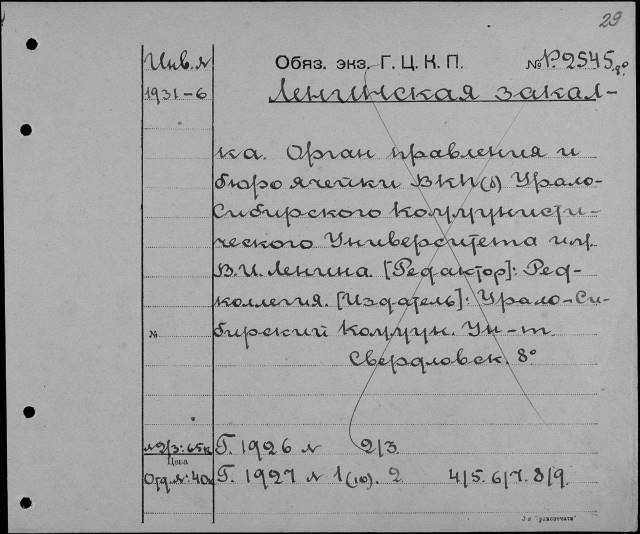 29
Инв. №
Обяз. экз. Г. Ц. К. П. № Р.2545. 8°
1931-6
Ленинская закал-
ка. Орган правления и
бюро ячейки ВКП(б) Урало-
Сибирского Коммунисти-
ческого Университета им.
В.И. Ленина. [Редактор]: Ред-
коллегия. [Издатель]: Урало-Си-
№
бирский Коммун. Ун-т.
Свердловск. 8°
№2/3: 65к Г. 1926 № 2/3.
Цена
Отд. №: 40к Г. 1927 № 1(10). 2 4/5. 6/7. 8/9.